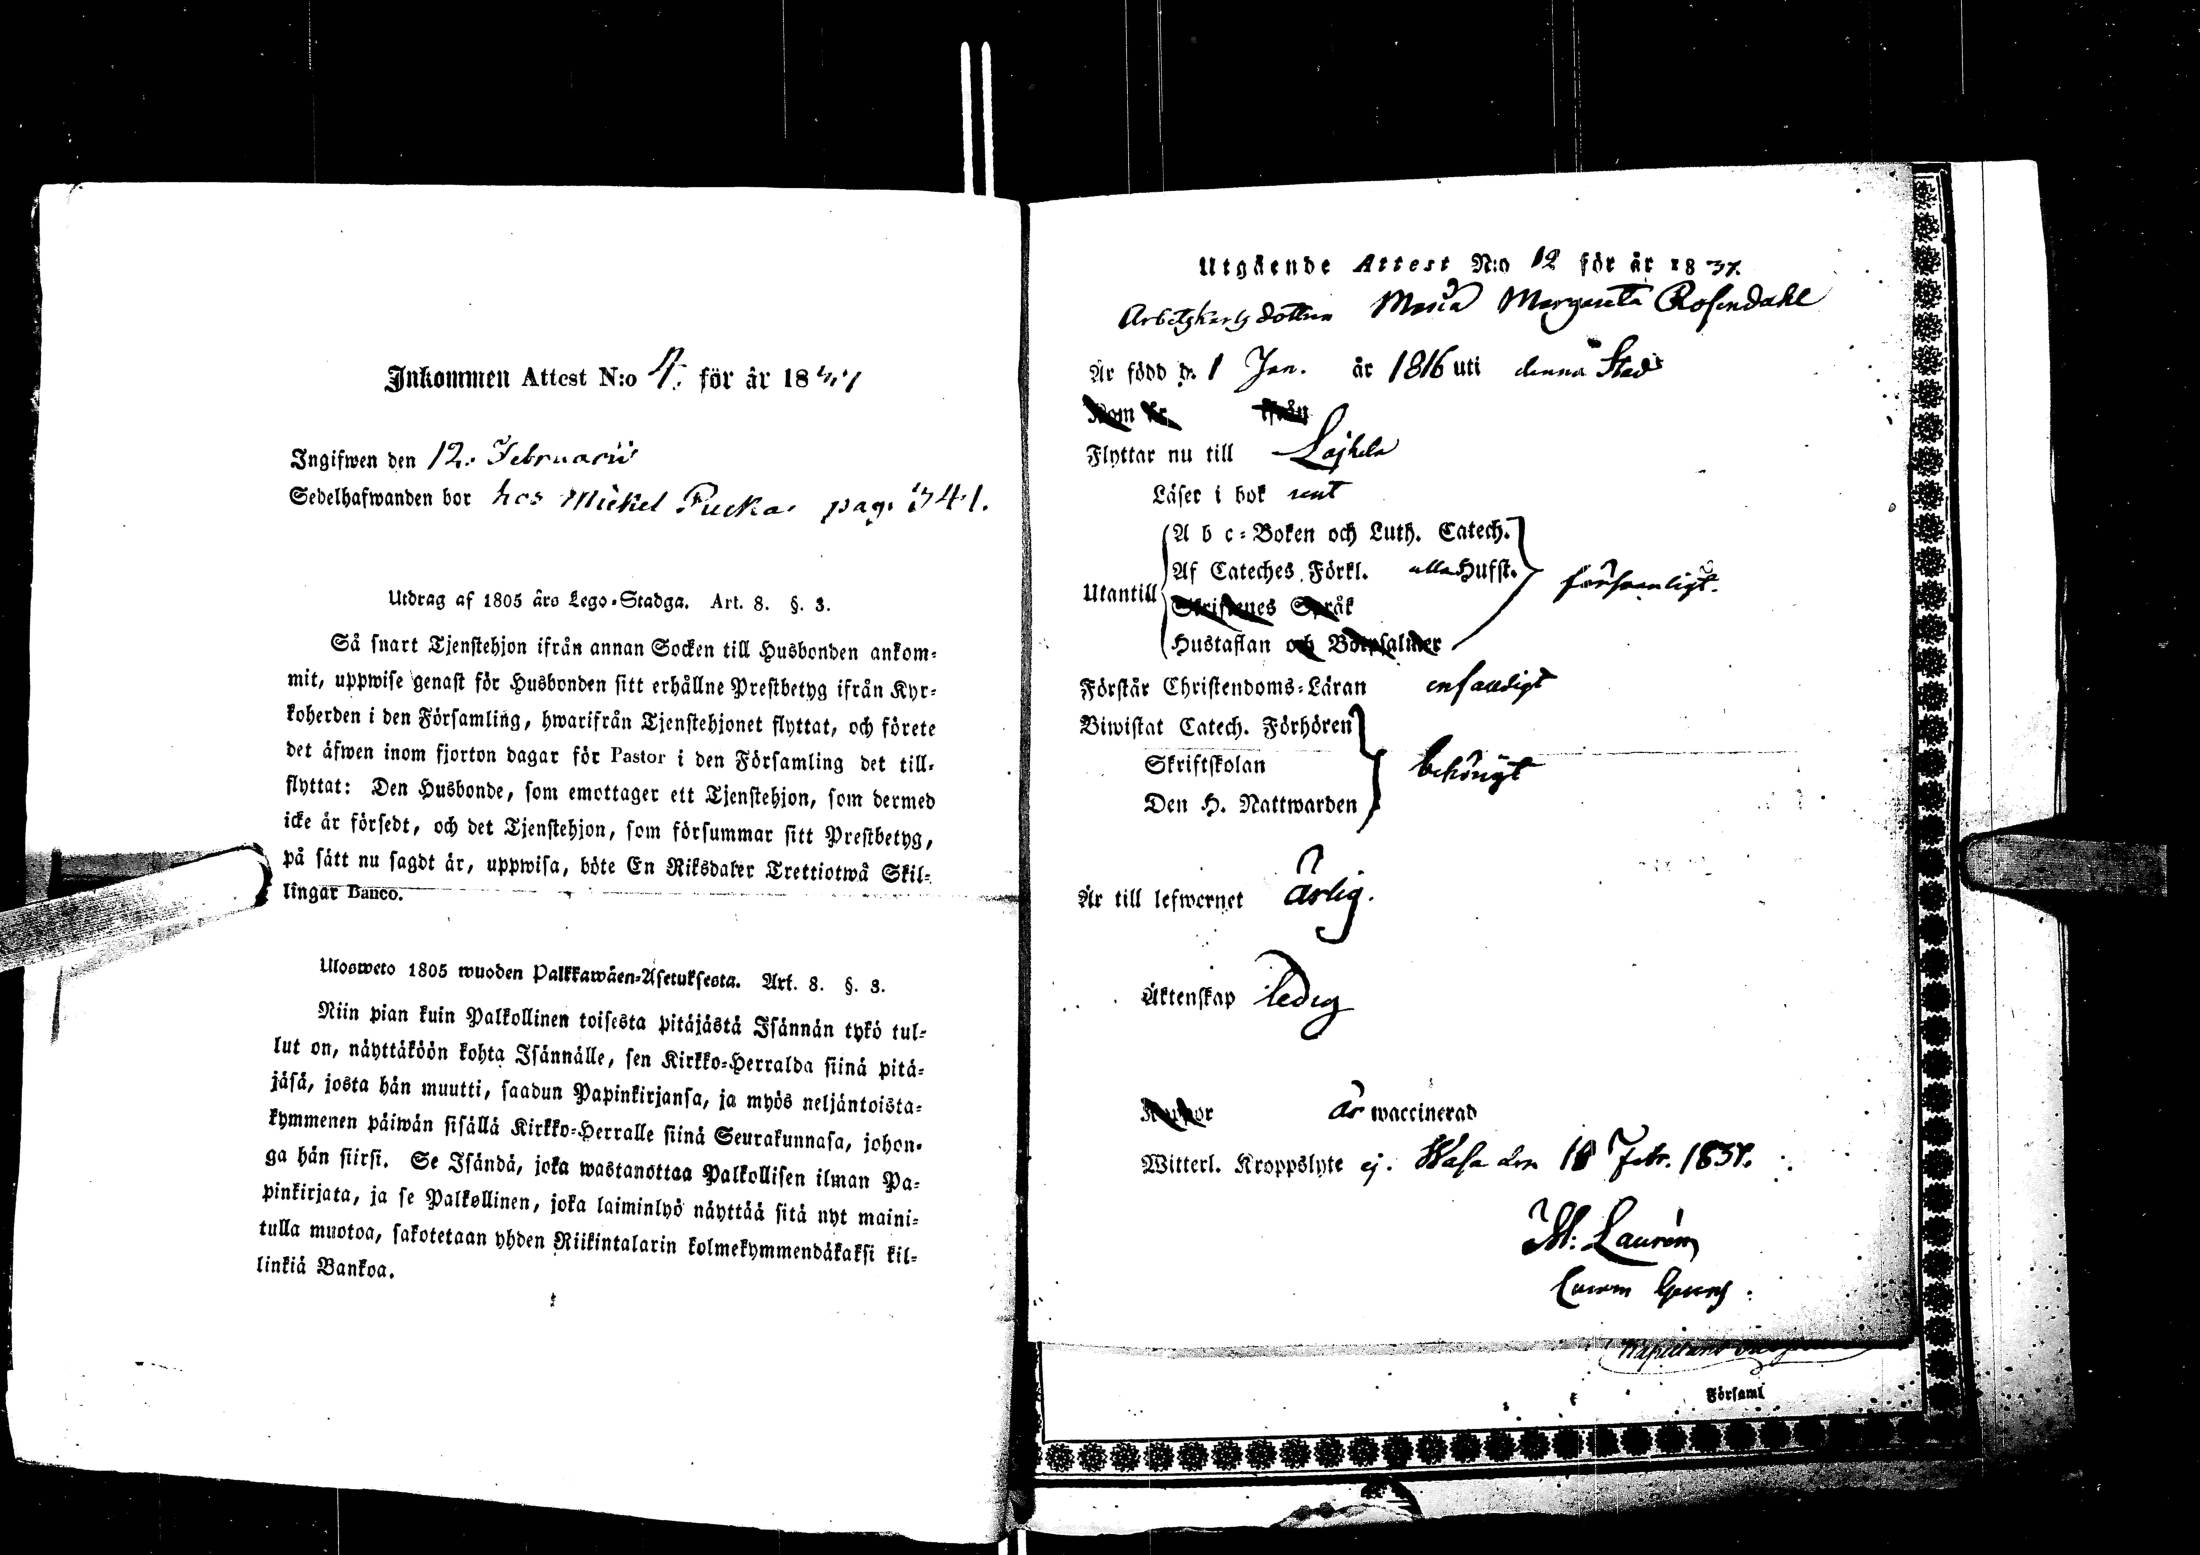 Inkommen Attest N:o 4. för år 18
Ingifwen den 12. Februarii
Sedelhafwanden bor hos Mickel Pucka pag. 341.
Utdrag af 1805 års Lego-Stadga. Art. 8. §. 3.
Så snart Tjenstehjon ifrån annan Socken till Husbonden ankom-
mit, uppwise genast för Husbonden sitt erhållne Prestbetyg ifrån Kyr-
koherden i den Församling, hwarifrån Tjenstehjonet flyttat, och förete
det äfwen inom fjorton dagar för Pastor i den Församling det till-
flyttat: Den Husbonde, som emottager ett Tjenstehjon, som dermed
icke är försedt, och det Tjenstehjon, som försummar sitt Prestbetyg,
på sätt nu sagdt är, uppwisa, böte En Riksdaler Trettiotwå Skil-
lingar Banco.
Ulosweto 1805 wuoden Palkkawäen-Asetuksesta. Art. 8. §. 3.
Niin pian kuin Palkollinen toisesta pitäjästä Isännän tykö tul-
lut on, näyttäköön kohta Isännälle, sen Kirkko-Herralda siinä pitä-
jäsä, josta hän muutti, saadun Papinkirjansa, ja myös neljäntoista-
kymmenen päiwän sisällä Kirkko-Herralle siinä Seurakunnasa, johon-
ga hän siirsi. Se Isändä, joka wastanottaa Palkollisen ilman Pa-
pinkirjata, ja se Palkollinen, joka laiminlyö näyttää sitä nyt maini-
tulla muotoa, sakotetaan yhden Riikintalarin kolmekymmendäkaksi kil-
linkiä Bankoa.
Utgående Attest N:o 12 för år 1837.
Arbetskarlsdottren Maria Margareta Rosendahl
Är född d. 1 Jan. år 1816 uti denna Stad
Kom år ifrån
Flyttar nu till Lajhela
Läser i bok rent
A b c-Boken och Luth. Catech.
Af Cateches Förkl. alla Hufst.
Utantill försvarligt.
Skriftenes Språk
Hustaflan och Botpsalmer
Förstår Christendoms-Läran enfaldigt
Biwistat Catech. Förhören
Skriftskolan behörigt
Den H. Nattwarden
Är till lefwernet ärlig.
Äktenskap ledig
är waccinerad
Witterl. Kroppslyte ej. Wasa den 18 Febr. 1837.
Laurén
Församl